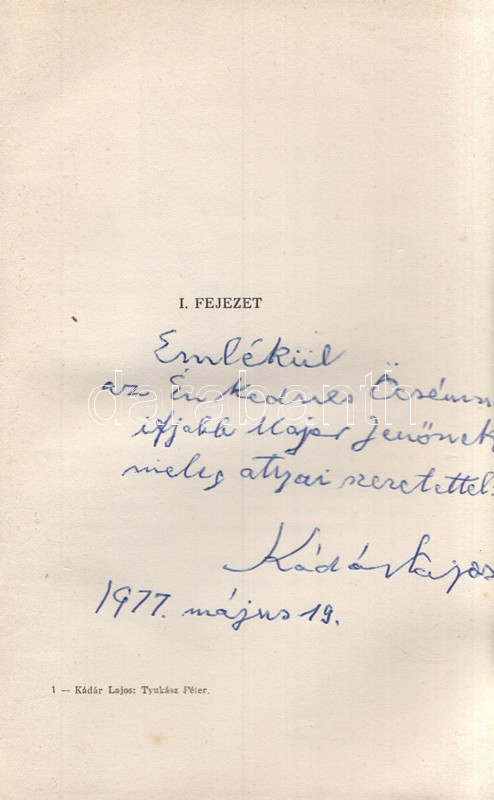 I. FEJEZET
Emlékül
az Én Kedves Öcsémn
ifjabb Major Jenőnek
meleg atyai szeretettel.
darabanth
Kádár Lajos
1977. május 19.
1 — Kádár Lajos: Tyukász Péter.